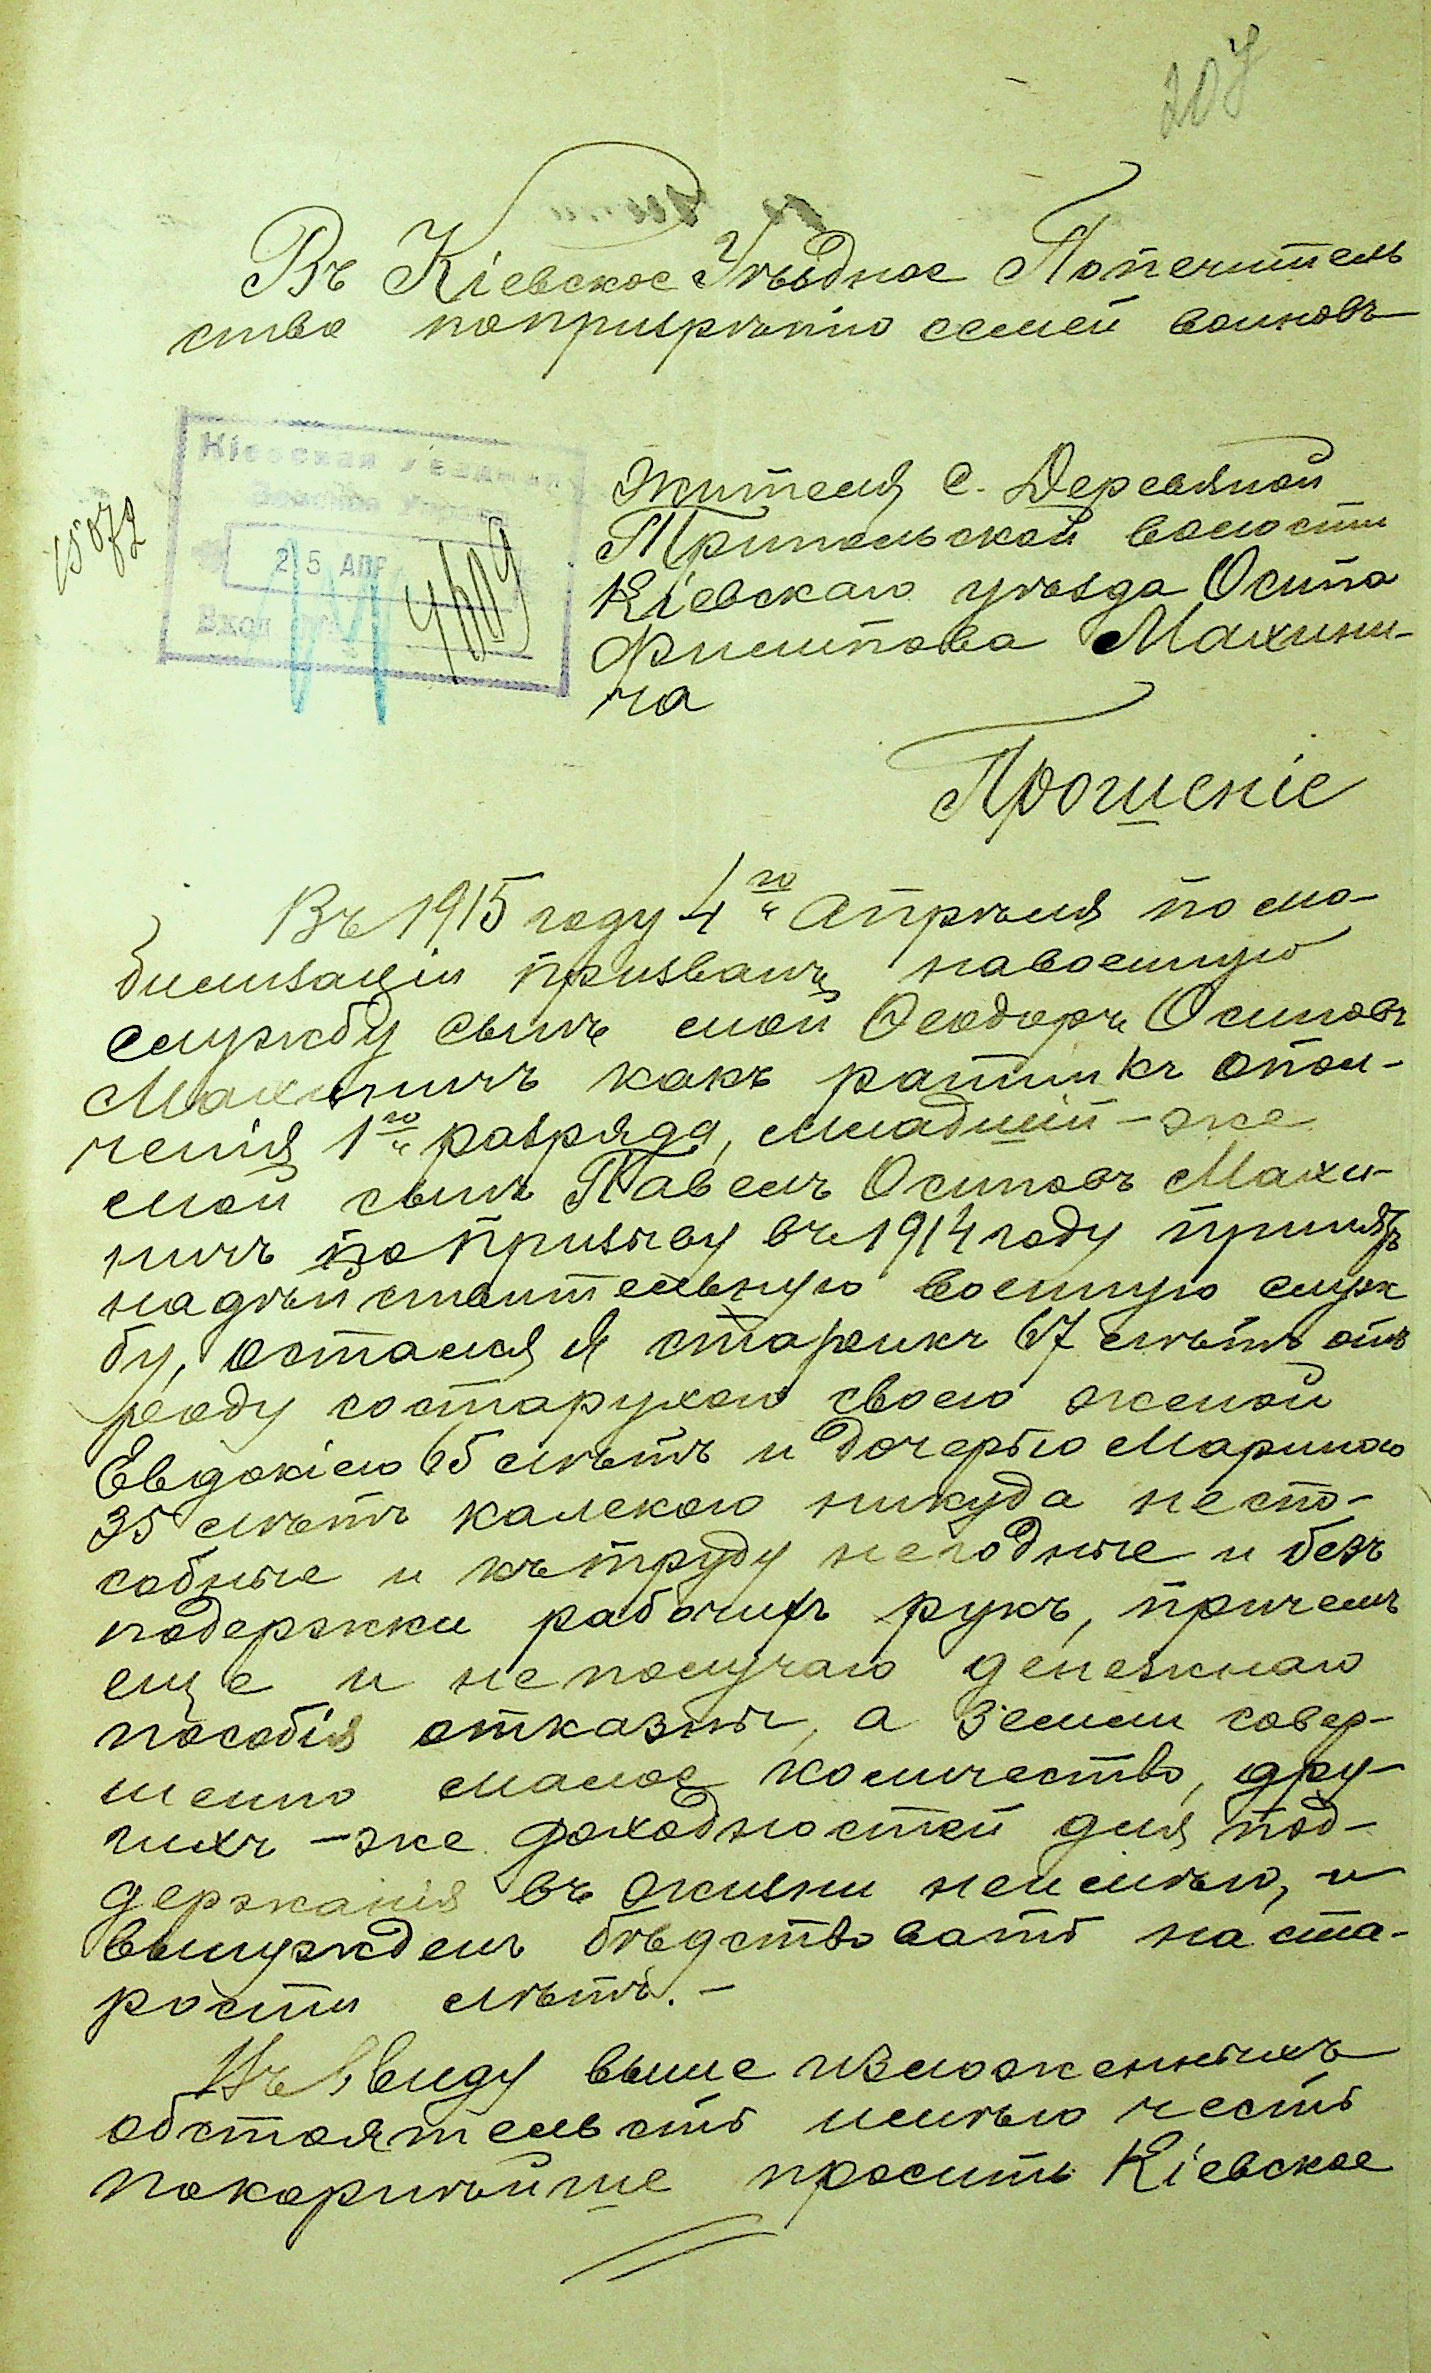 207
Въ Кіевское Уѣздное Попечитель
ство попризрѣнію семей воиновъ
Кіевская Уѣздная
Земская Управа
25 АПР
Вход
4609
15072
Жителя с. Деревяной
Трипольской волости
Кіевскаго уѣзда Осипа
Филипова Махини-
ча
Прошеніе
Въ 1915 году 4го Апрѣля по мо-
билизаціи призванъ навоенную
службу сынъ мой Ѳеодоръ Осиповъ
Махиничъ какъ ратникъ опол-
ченія 1го разряда, младшій-же
мой сынъ Павелъ Осиповъ Махи-
ничъ по призыву въ 1914 году принятъ
надѣйствительную военную служ
бу, остался я старикъ 67 лѣтъ отъ
роду состарухою своею женой
Евдокіею 65 лѣтъ и дочерью Мариною
35 лѣтъ калекою никуда неспо-
собные и къ труду негодные и безъ
подержки рабочихъ рукъ, причемъ
еще и неполучаю денежнаго
пособія отказны, а земли совер-
шенно малое количество, дру-
гихъ-же доходностей для под-
держанія въ жизни неимѣю, и
вынужденъ бѣдствовать на ста-
рости лѣтъ.-
Въ виду выше изложенныхъ
обстоятельствъ имѣю честь
покорнѣйше просить Кіевское